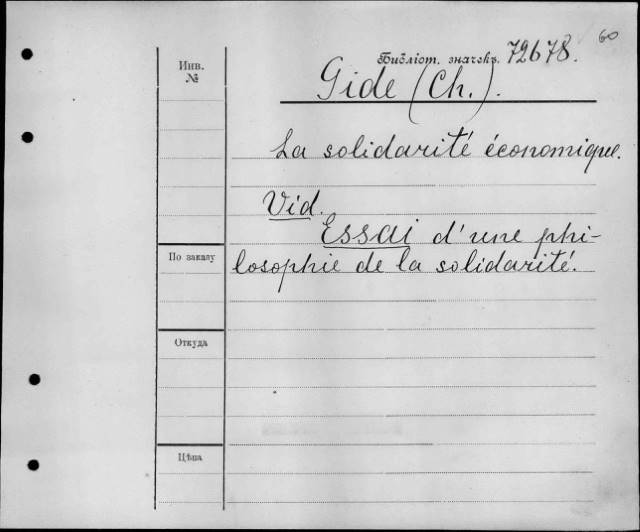 60
Инв.
№
Библіот. значекъ. 72678.
Gide (Ch.).
La solidarité économique.
Vid.
Essai d'une phi-
losophie de la solidarité.
По заказу
Откуда
Цѣна